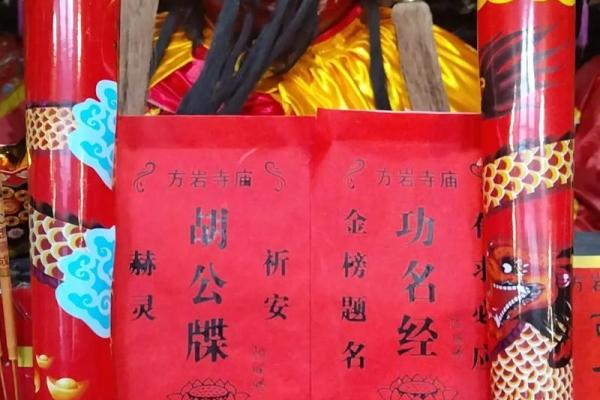 方岩寺庙
胡公牒
祈安
赫灵
方岩寺庙
功名经
有求必应
金榜题名